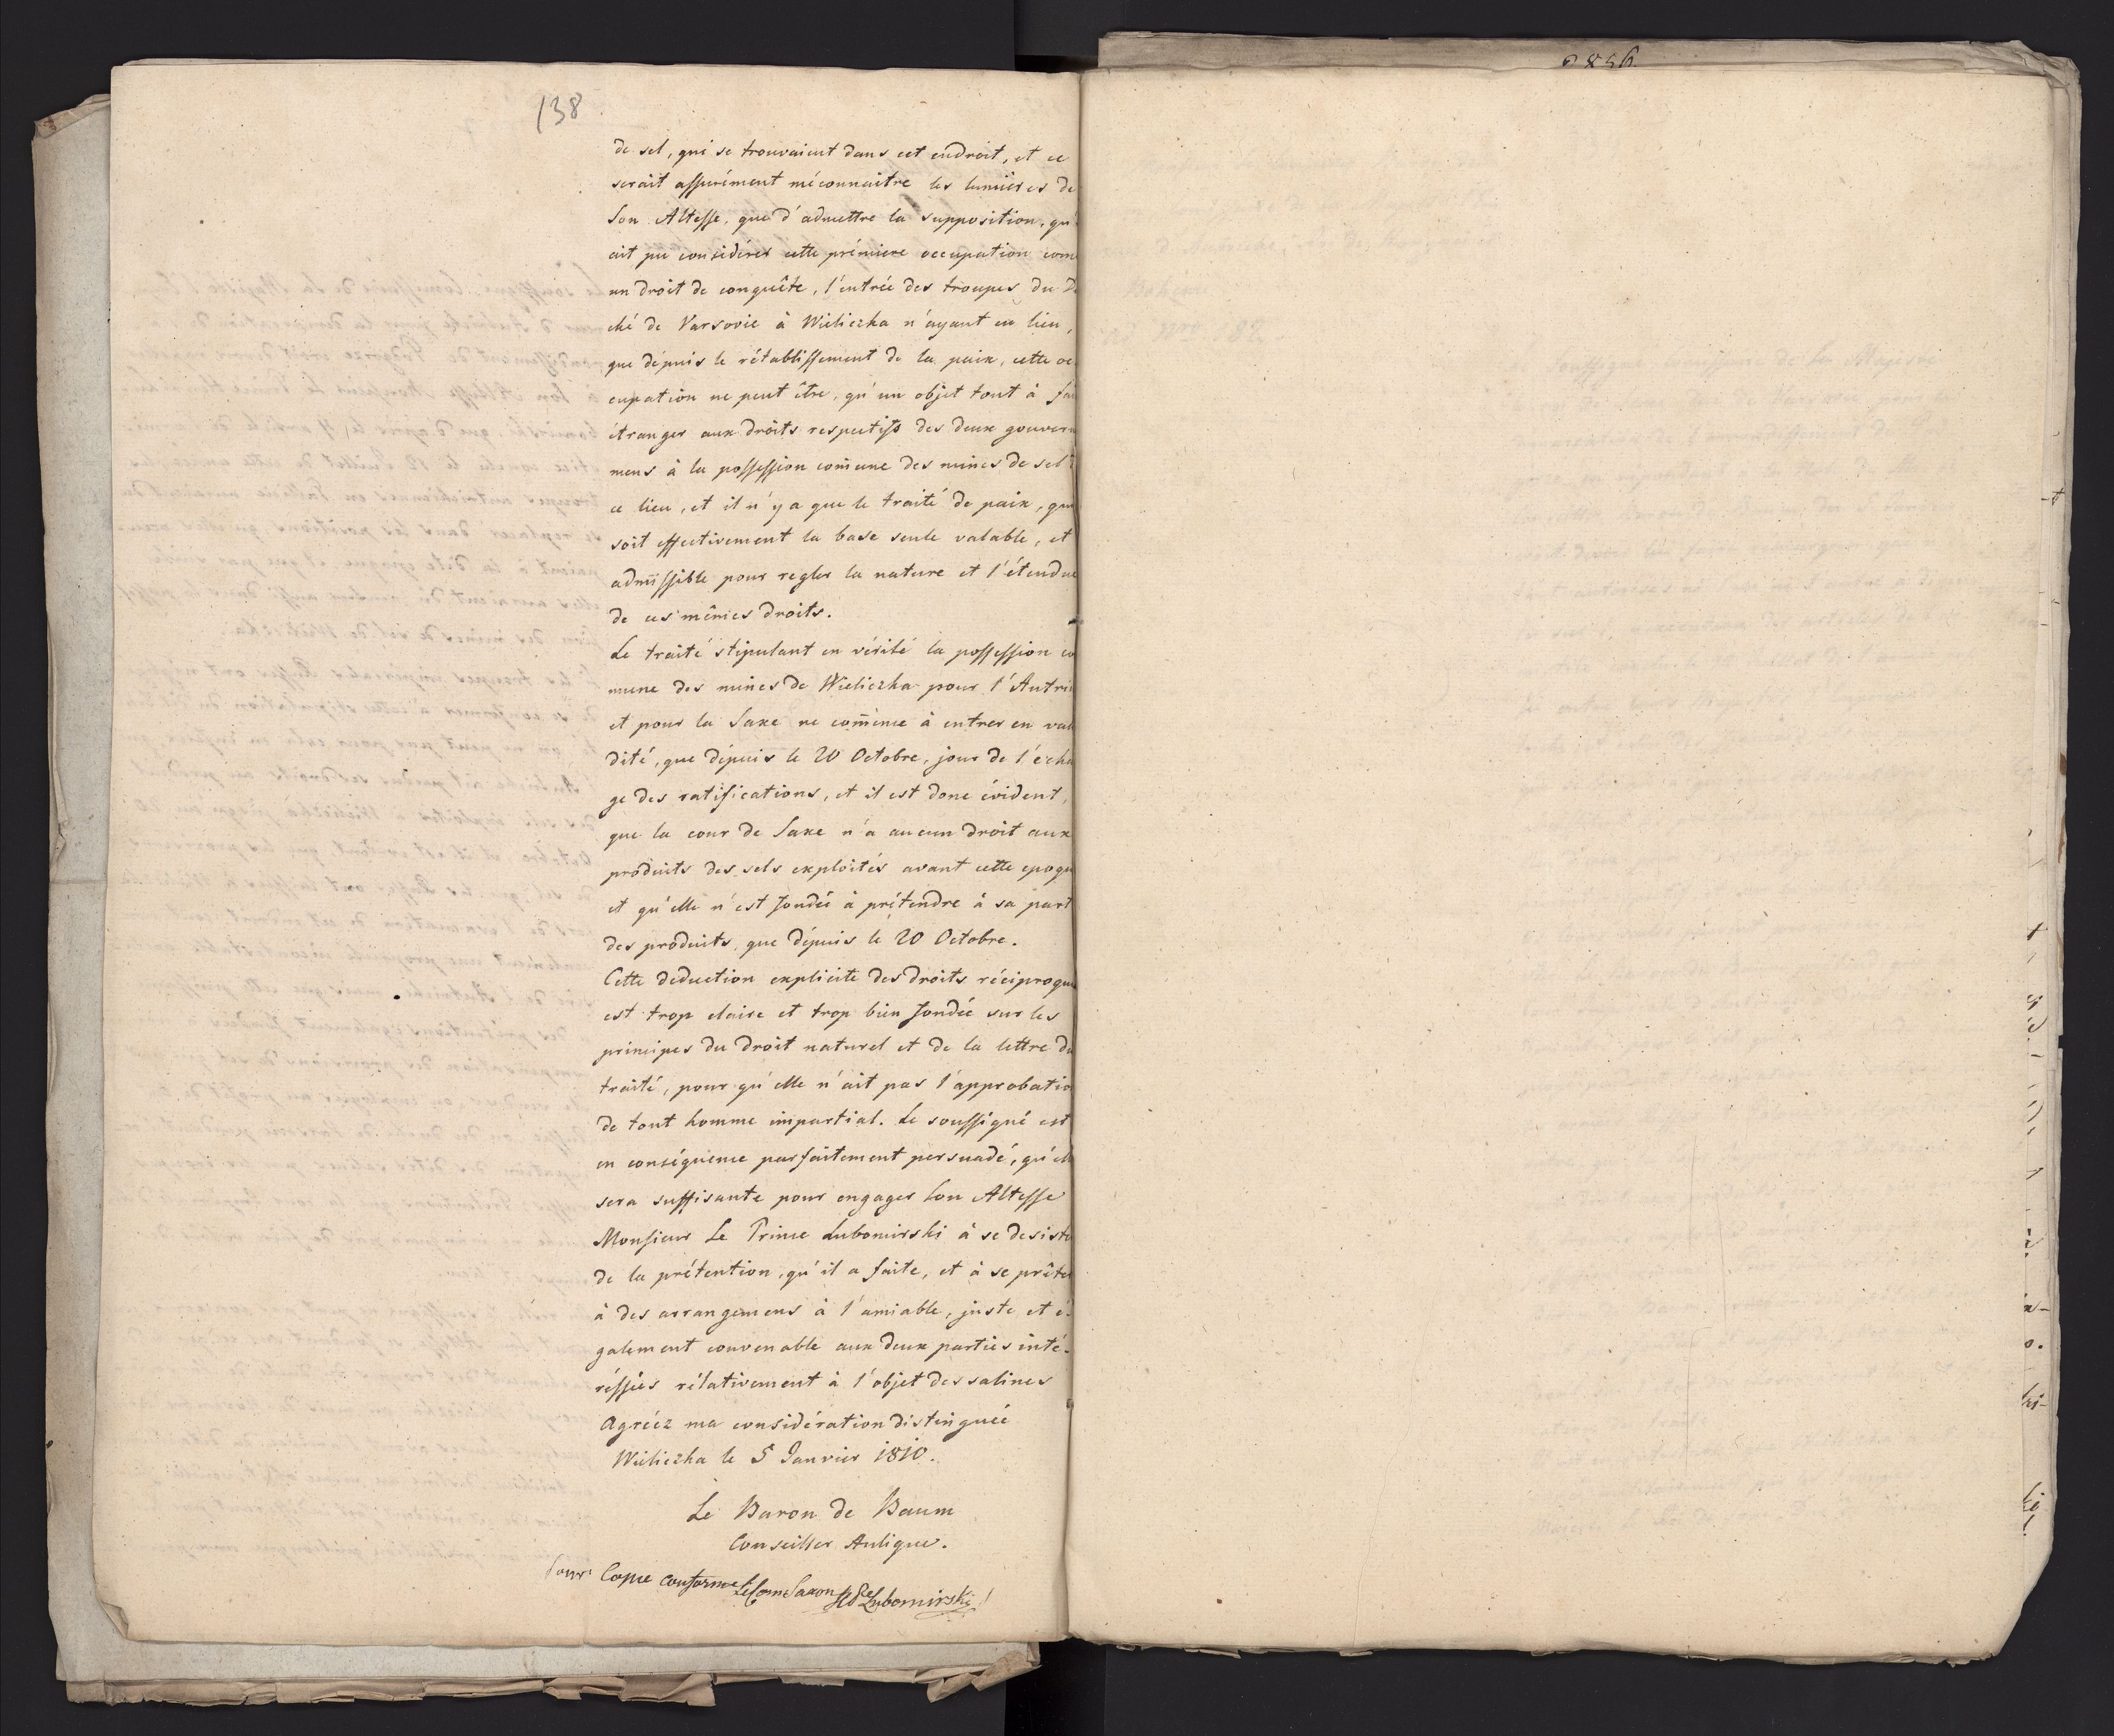 138
de sel, qui se trouvaient dans cet endroit, et ce
serait assurément méconnaitre les lumiéres de
Son Altesse, que d'admettre la supposition, qu'
ait pu considérer cette prémiere occupation com
un droit de conquête, l'entrée des troupes du D
ché de Varsovie à Wieliczka n'ayant eu lieu,
que dépuis le rétablissement de la paix, cette oc
cupation ne peut être, qu'un objet tout à fai
étranger aux droits respectifs des deux gouvern
mens à la possession com̄une des mines de sel d
ce lieu, et il n'y a que le traité de paix, qui
soit effectivement la base seule valable, et
admissible pour regler la nature et l'étendue
de ces mêmes droits.
Le traité stipulant en vérité la possession co
mune des mines de Wieliczka pour l'Autri
et pour la Saxe ne com̄ence à entrer en vali
dité, que dépuis le 20 Octobre, jour de l'écha
ge des ratifications, et il est donc évident,
que la cour de Saxe n'a aucun droit aux
produits des sels exploités avant cette epoqu
et qu'elle n'est fondée à prétendre à sa part
des produits, que dépuis le 20 Octobre.
Cette deduction explicite des droits réciproqu
est trop claire et trop bien fondée sur les
principes du droit naturel et de la lettre du
traité, pour qu'elle n'ait pas l'approbatio
de tout homme impartial. Le soussigné est
en conséquence parfaitement persuadé, qu'el
sera suffisante pour engager Son Altesse
Monsieur Le Prince Lubomirski à se desiste
de la prétention, qu'il a faite, et à se prêter
à des arrangemens à l'amiable, juste et é-
galement convenable aux deux parties inté-
réssées rélativement à l'objet des salines
Agréez ma considération distinguée
Wieliczka le 5 Janvier 1810.
Le Baron de Baum
Conseiller Aulique.
Pour Copie conforme Le Com: Saxon H Pce Lubomirski